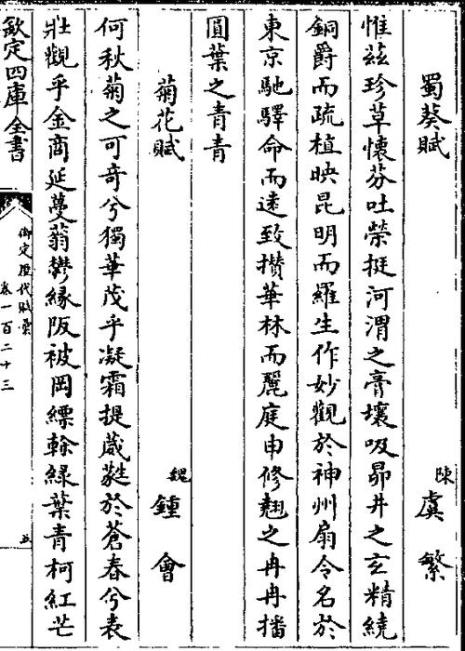 蜀葵賦 陳 虞繁
惟茲珍草懷芬吐榮挺河渭之膏壤吸昴井之玄精繞
銅爵而疏植映昆明而羅生作妙觀於神州扇令名於
東京馳驛命而遠致攅華林而麗庭申修翹之冉冉播
圓葉之青青
菊花賦 魏 鍾會
何秋菊之可奇兮獨華茂乎凝霜提葳蕤於蒼春兮表
壯觀乎金商延蔓蓊鬱緣阪被岡縹榦綠葉青柯紅芒
欽定四庫全書 御定歷代賦彙 卷一百二十三 五